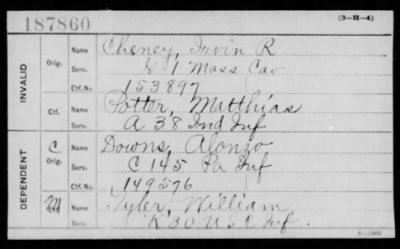 187860
(3-H-4)
INVALID
Orig.
Name Cheney, Irvin R
Serv. G 1 Mass Cav
Ctf. No. 153897
Ctf.
Name Potter, Matthias
Serv. A 38 Ind Inf
DEPENDENT
C
Orig.
Name Downs, Alonzo
Serv. C 145 Pa Inf
Ctf. No. 149576
M
Ctf.
Name Tyler, William
Serv. K